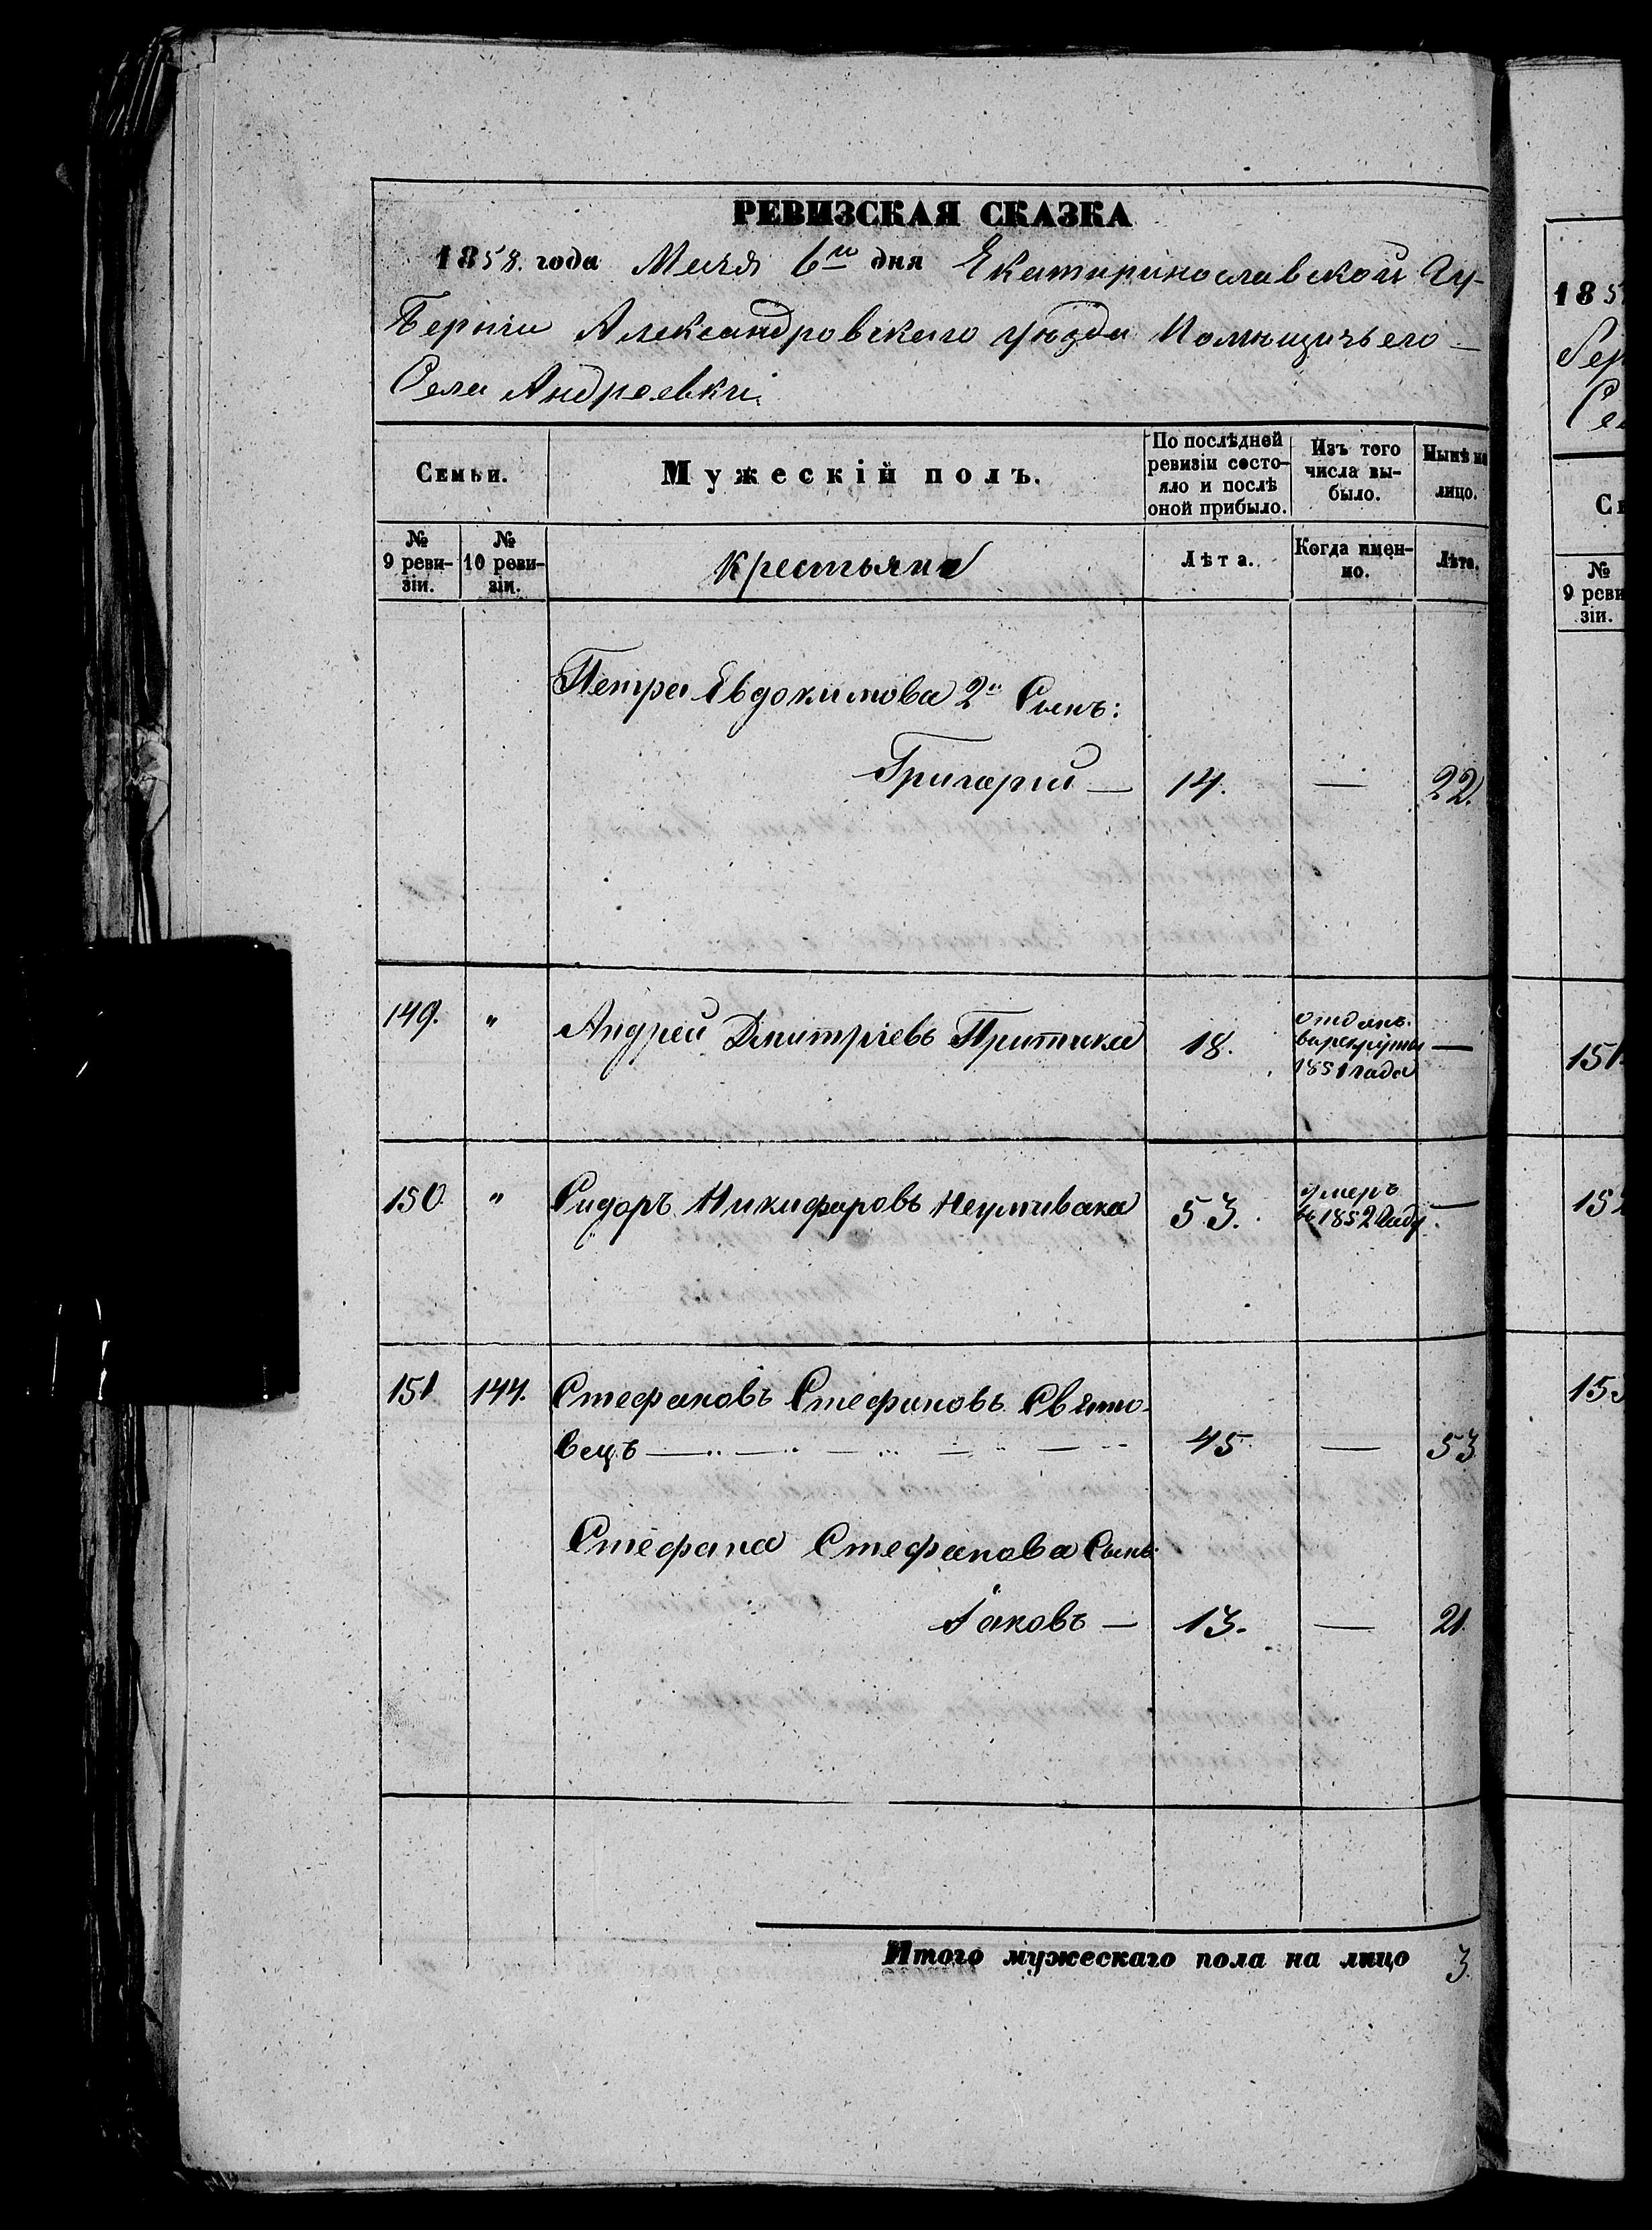 РЕВИЗСКАЯ СКАЗКА
1858. года Маия 6го дня Екатеринославской Гу-
берніи Александровскаго уѣзда Помѣщичьего
Села Андреевки.
Семьи.
Мужескій полъ.
По послѣдней
ревизіи состо-
яло и послѣ
оной прибыло.
Изъ того
числа вы-
было.
Нынѣ на
лицо.
№
9 реви-
зіи.
№
10 реви-
зіи.
Крестьяне
Лѣта.
Когда имен-
но.
Лѣта.
Петра Евдокимова 2й Сынъ:
Григорій — 14. — 22.
149. " Андрей Дмитріевъ Притика 18. отданъ
в рекруты —
1851 года
150. " Сидоръ Никифоровъ Неумивака 53. умеръ
въ 1852 году. —
151 144. Стефановъ Стефановъ Свято-
вецъ — 45 — 53
Стефана Стефанова Сынъ:
Іаковъ — 13. — 21.
Итого мужескаго пола на лицо 3.
185
Сел
№
9 реви
зіи.
151.
152
153